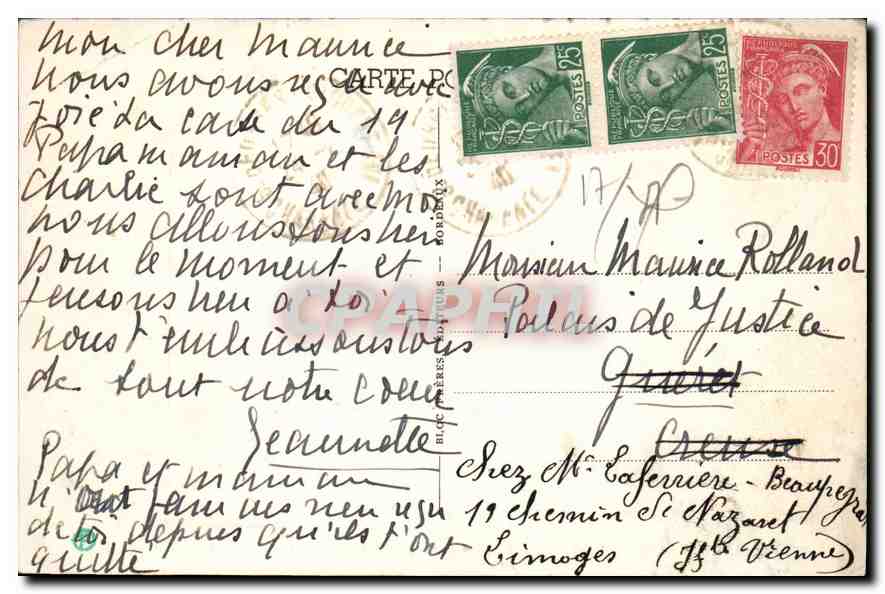 mon cher Maurice
nous avons reçu avec
joie ta carte du 19
Papa maman et les
Charlie sont avec moi
nous allons tous bien
pour le moment et
pensons bien à toi
nous t'embrassons tous
de tout notre coeur
Jeannette
Papa et maman
n'ont jamais rien reçu
de toi depuis qu'ils t'ont
quitté
CARTE PO
BLOC FRÈRES ÉDITEURS — BORDEAUX
25c
POSTES
25c
POSTES
REPUBLIQUE FRANÇAISE
POSTES 30c
17/
Monsieur Maurice Rolland
Palais de Justice
Guéret
Creuse
Chez Mr Laferrière - Beaupeyrat
19 chemin St Nazaret
Limoges (Hte Vienne)
CPAPHIL